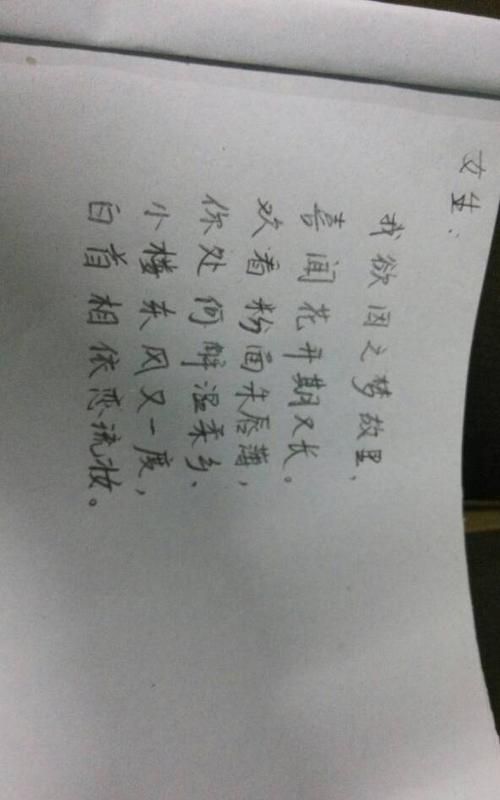 女生：
我欲因之梦故里，
喜闻花开期又长。
欢看粉面朱唇薄，
你处何解温柔乡、
小楼东风又一度，
白首相依恋流妆。